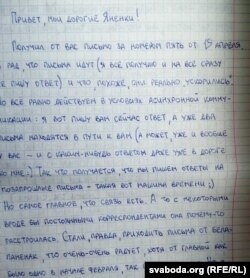 Привет, мои дорогие Яненки!
Получил от вас письмо за номером пять от 15 апреля.
рад, что письма идут (я все получаю и на все сразу
пишу ответ) и что, похоже, они реально ускорились.
всё равно действуем в условиях асинхронной комму-
никации: я вот пишу вам сейчас ответ, а уже два
письма находятся в пути к вам (а может, уже и вообще
у вас - и с каким-нибудь ответом даже уже в дороге
ко мне). Так что получается, что мы пишем ответы на
позапрошлые письма - такая вот машина времени ;)
Но самое главное, что связь есть. А то с некоторыми
вроде бы постоянными корреспондентами она почему-то
расстроилась. Стали, правда, приходить письма от Бела-
панечак, что очень-очень радует, хотя от главной как
было одно в начале февраля, так
svaboda.org (RFE/RL)